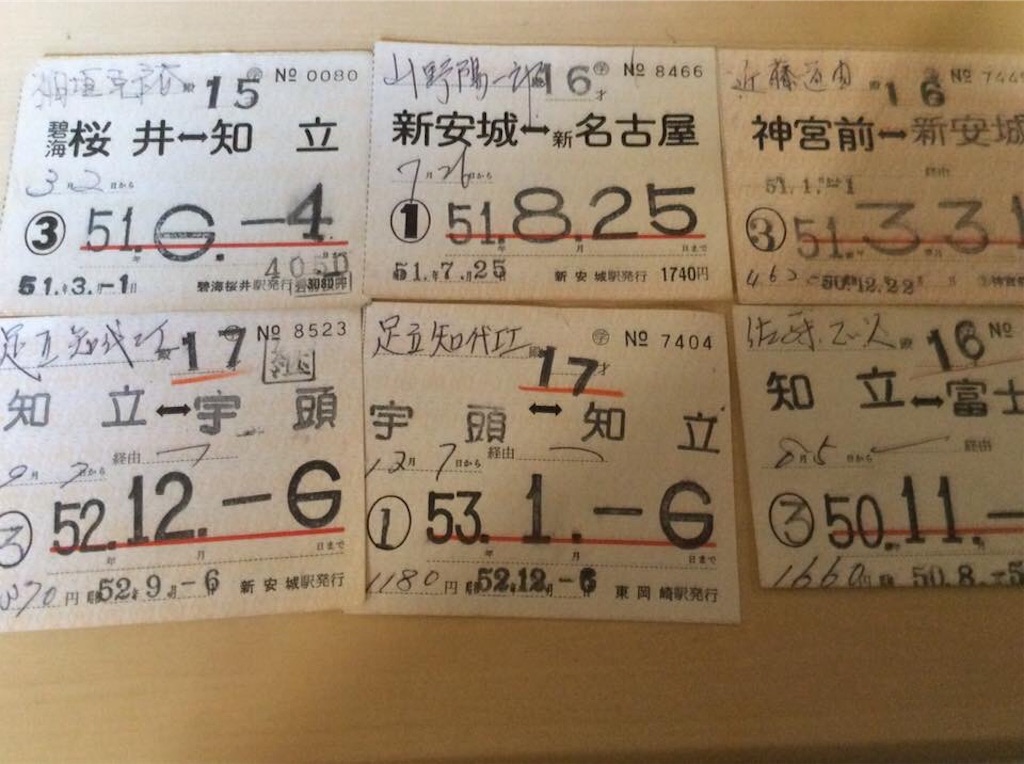 殿 15 学 № 0080
碧海桜井↔知立
3月2日から
③ 51.6.-4
4050
51.年3.月-1日 碧海桜井駅発行
山野陽一郎 16才 学 № 8466
新安城↔新名古屋
7月26日から
① 51.8.25
年 月 日まで
51.年7.月25日 新安城駅発行 1740円
近藤 殿 16 № 744
神宮前↔新安城
経由
51.1.-1
③ 51.3.31
50.12.22
足立知代江 殿 17 学 № 8523
知立↔宇頭
9月7日から 経由
③ 52.12.-6
年 月 日まで
円 52年9月-6 新安城駅発行
足立知代江 殿 17才 学 № 7404
宇頭↔知立
12月7日から 経由
① 53.1.-6
年 月 日まで
1180円 52年12月-6 東岡崎駅発行
殿 16 №
知立↔富士
8月5日から
③ 50.11.-
1660円 50.8.-5